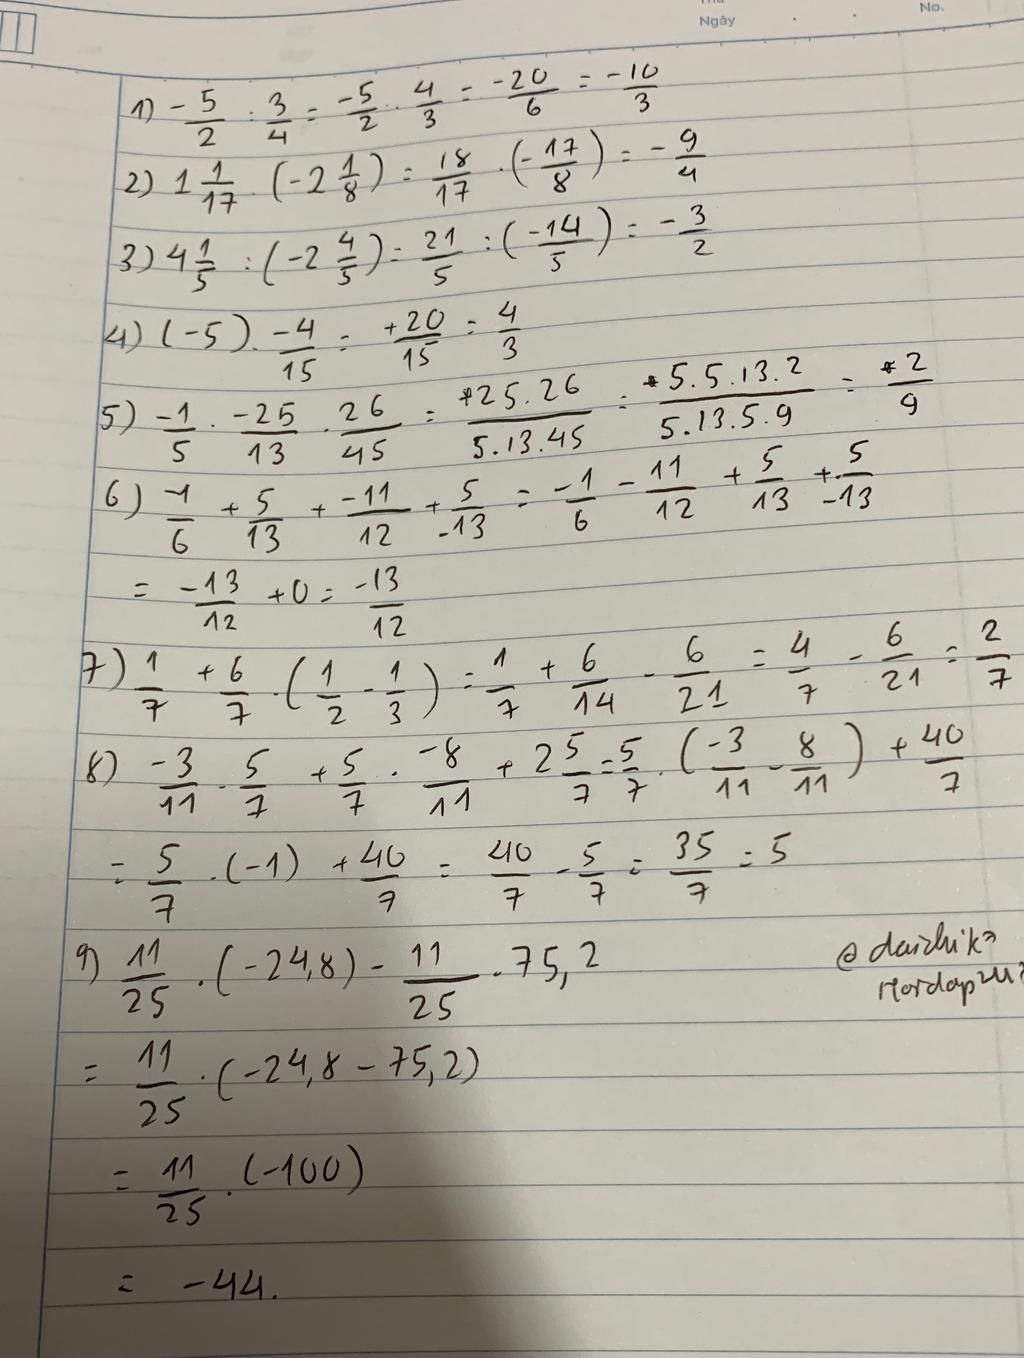 Ngày
No.
1) -5/2 : 3/4 = -5/2 . 4/3 = -20/6 = -10/3
2) 1 1/17 . (-2 1/8) = 18/17 . (-17/8) = -9/4
3) 4 1/5 : (-2 4/5) = 21/5 : (-14/5) = -3/2
4) (-5) . -4/15 = +20/15 = 4/3
5) -1/5 . -25/13 . 26/45 = +25.26/5.13.45 = +5.5.13.2/5.13.5.9 = +2/9
6) -1/6 + 5/13 + -11/12 + 5/-13 = -1/6 - 11/12 + 5/13 + 5/-13
= -13/12 + 0 = -13/12
7) 1/7 + 6/7 . (1/2 - 1/3) = 1/7 + 6/14 - 6/21 = 4/7 - 6/21 = 2/7
8) -3/11 . 5/7 + 5/7 . -8/11 + 2 5/7 = 5/7 . (-3/11 - 8/11) + 40/7
= 5/7 . (-1) + 40/7 = 40/7 - 5/7 = 35/7 = 5
9) 11/25 . (-24,8) - 11/25 . 75,2
= 11/25 . (-24,8 - 75,2)
= 11/25 . (-100)
= -44.